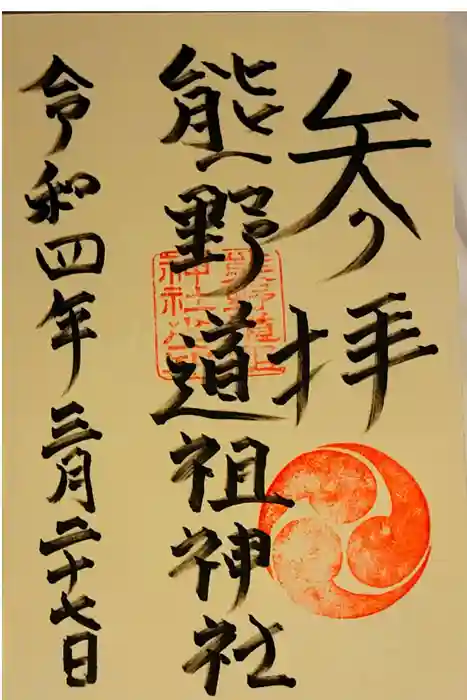 参拝
熊野道祖神社
令和四年 三月二十七日